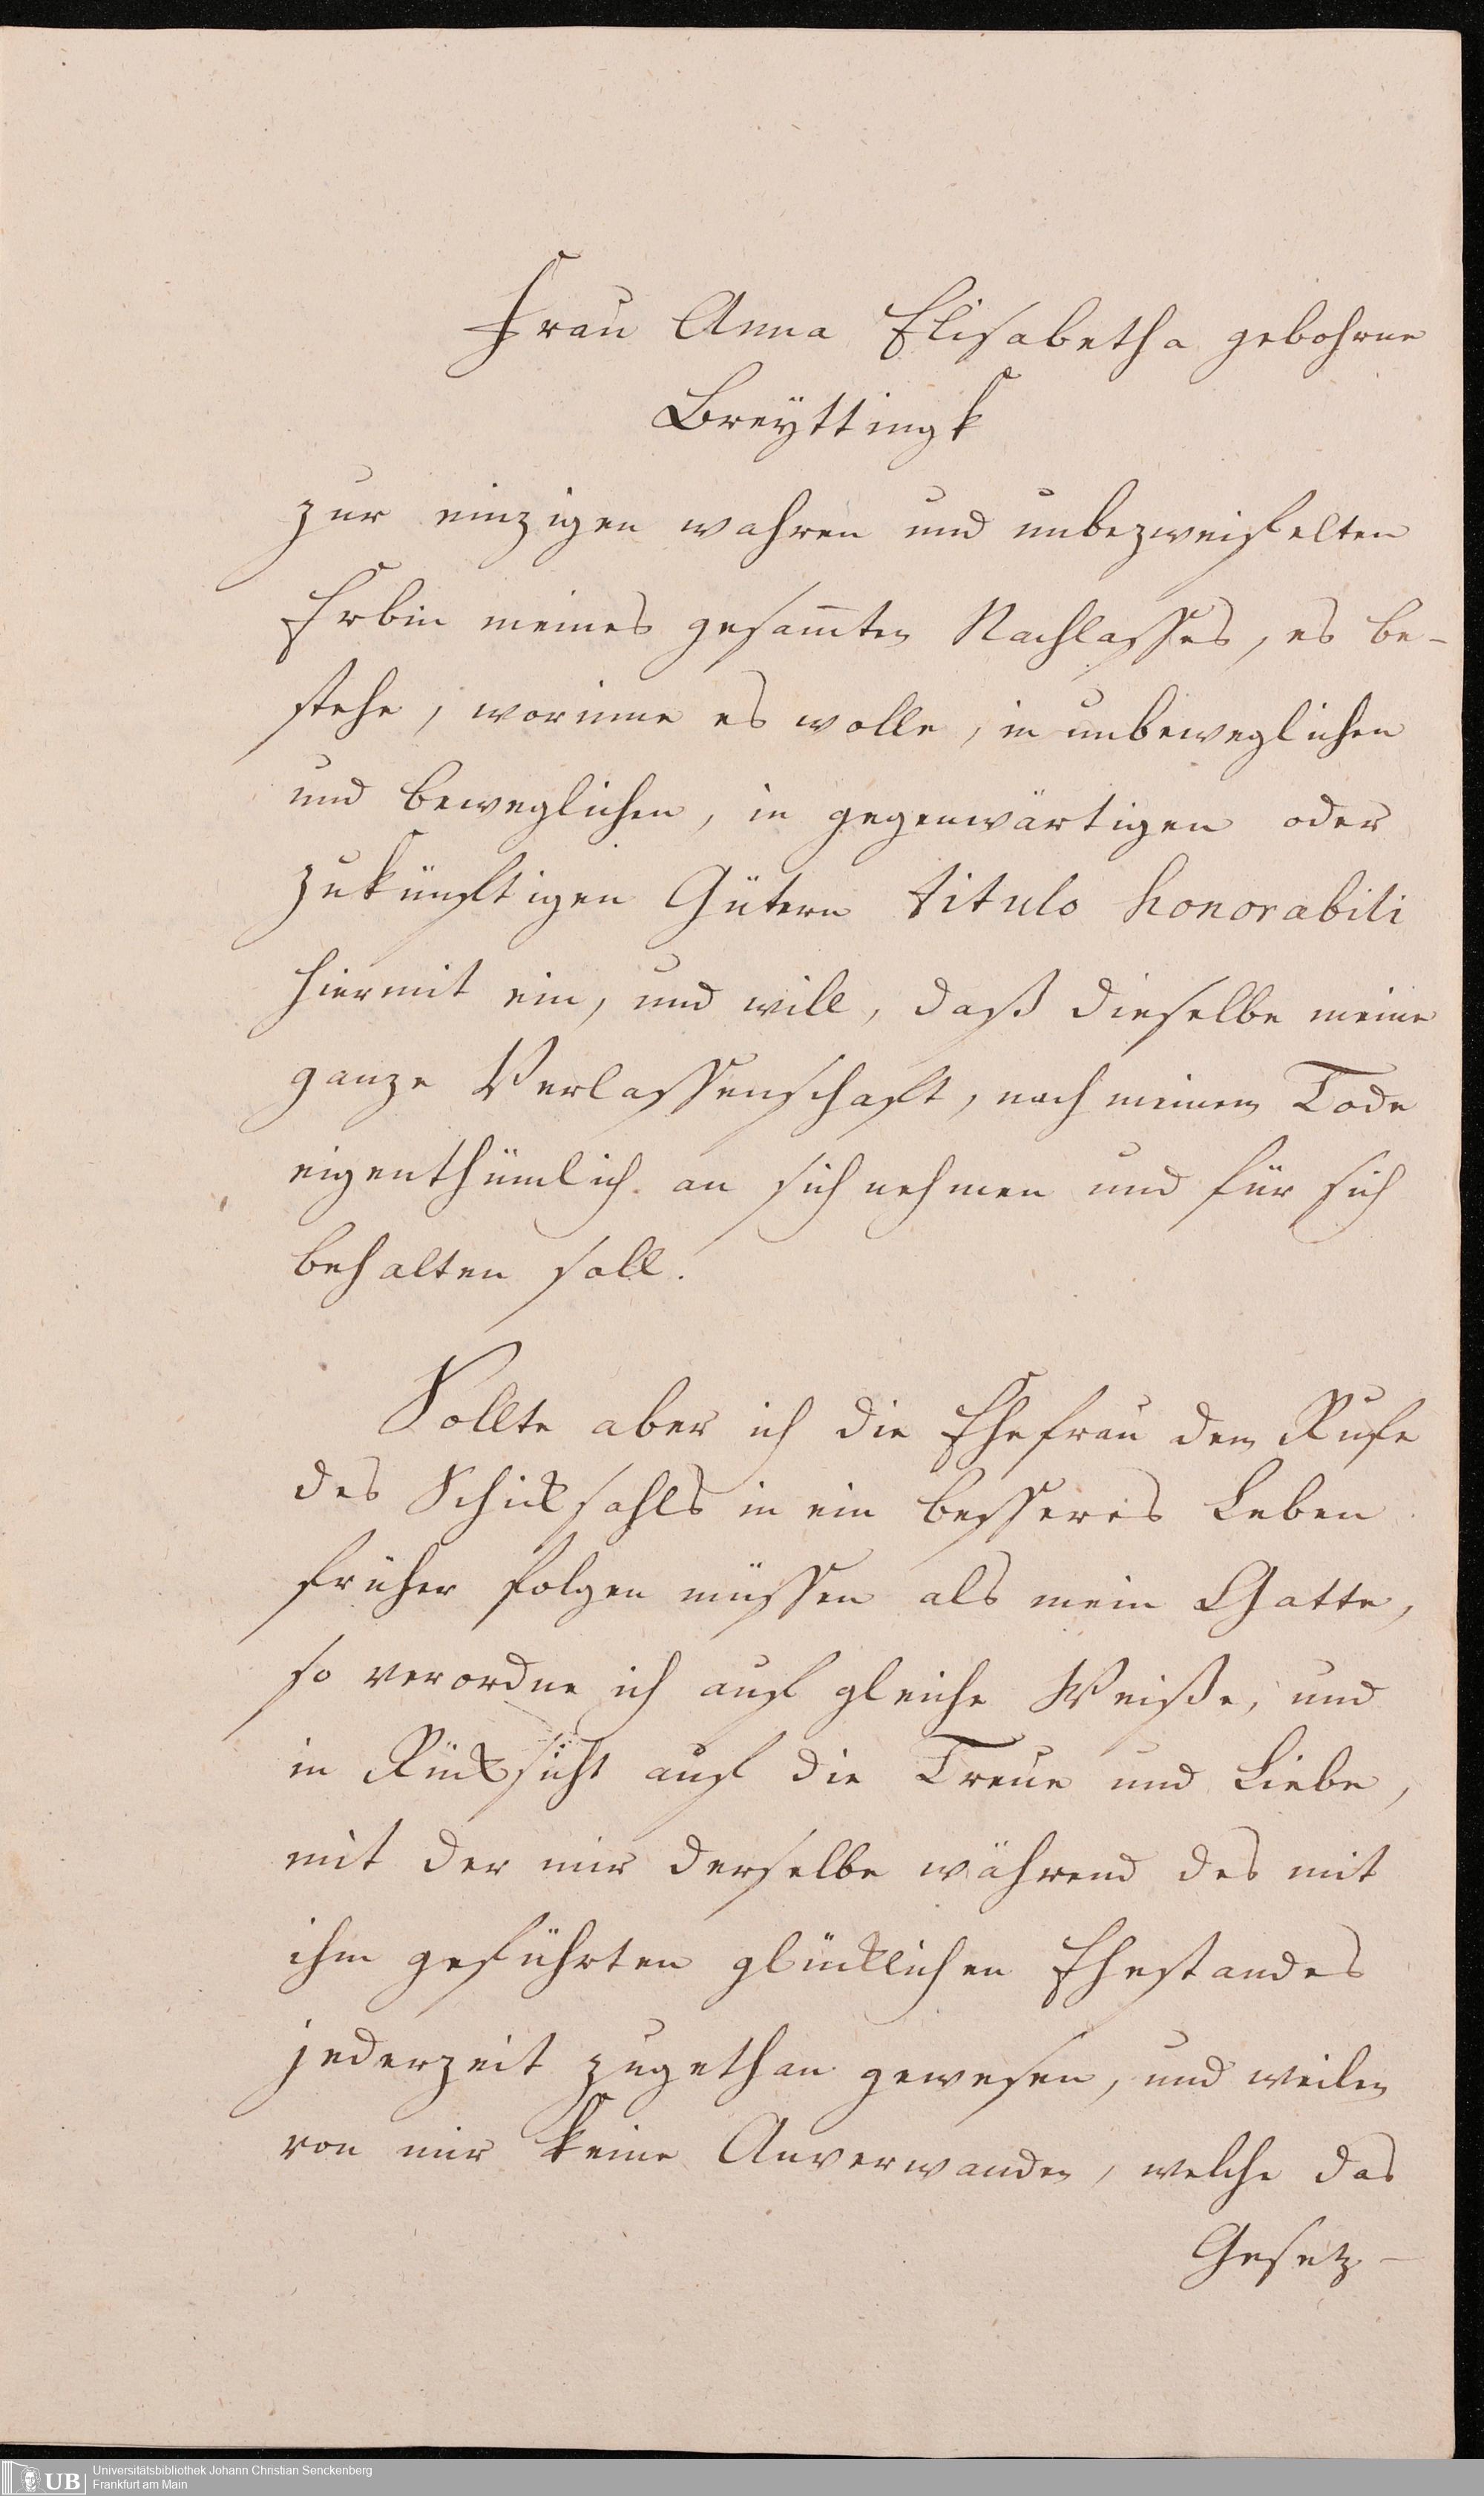 Frau Anna Elisabetha gebohrne
Breÿttingk
zur einzigen wahren und unbezweifelten
Erbin meines gesam̅ten Nachlasses, es be-
stehe, worinne es wolle, in unbeweglichen
und beweglichen, in gegenwärtigen oder
zukünftigen Gütern titulo honorabili
hiermit ein, und will, daß dieselbe meine
ganze Verlassenschaft, nach meinem Tode
eigenthümlich an sich nehmen und für sich
behalten soll.
Sollte aber ich die Ehefrau dem Rufe
des Schicksahls in ein besseres Leben
früher folgen müssen als mein Gatte,
so verordne ich auf gleiche Weiße, und
in Rücksicht auf die Treue und Liebe,
mit der mir derselbe während des mit
ihm geführten glücklichen Ehestandes
jederzeit zugethan gewesen, und weilen
von mir keine Anverwanden, welche das
Gesetz-
UB
Universitätsbibliothek Johann Christian Senckenberg
Frankfurt am Main